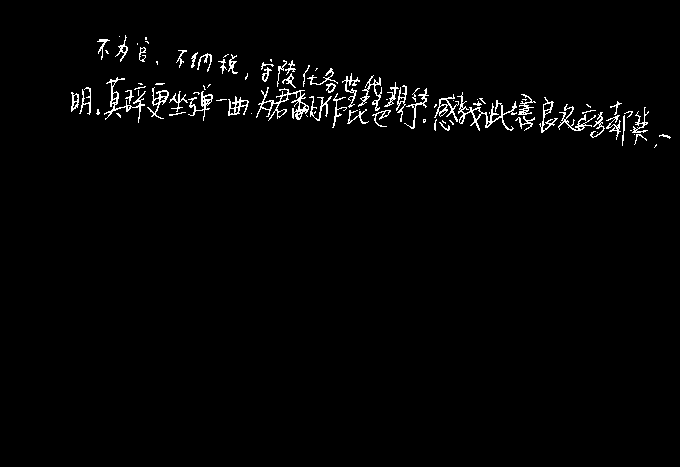 不为官，不纳税，守陵任务世代相传
明。莫辞更坐弹一曲，为君翻作琵琶行。感我此言良久立，却坐